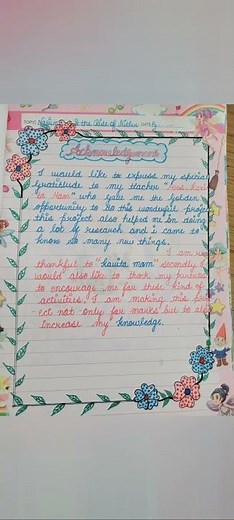 TOPIC DATE
Acknowledgement
I would like to express my special
gratitude to my teacher
ma'am" who gave me the golden
opportunity to do this wonderful project
this project also helped me in doing
a lot of research and i came to
know so many new things.
I am
thankful to "kavita mam" secondly i
would also like to thank my parents
to encourage me for these kind of
activities. I am making this proj
ect not only for marks but to also
increase my knowledge.